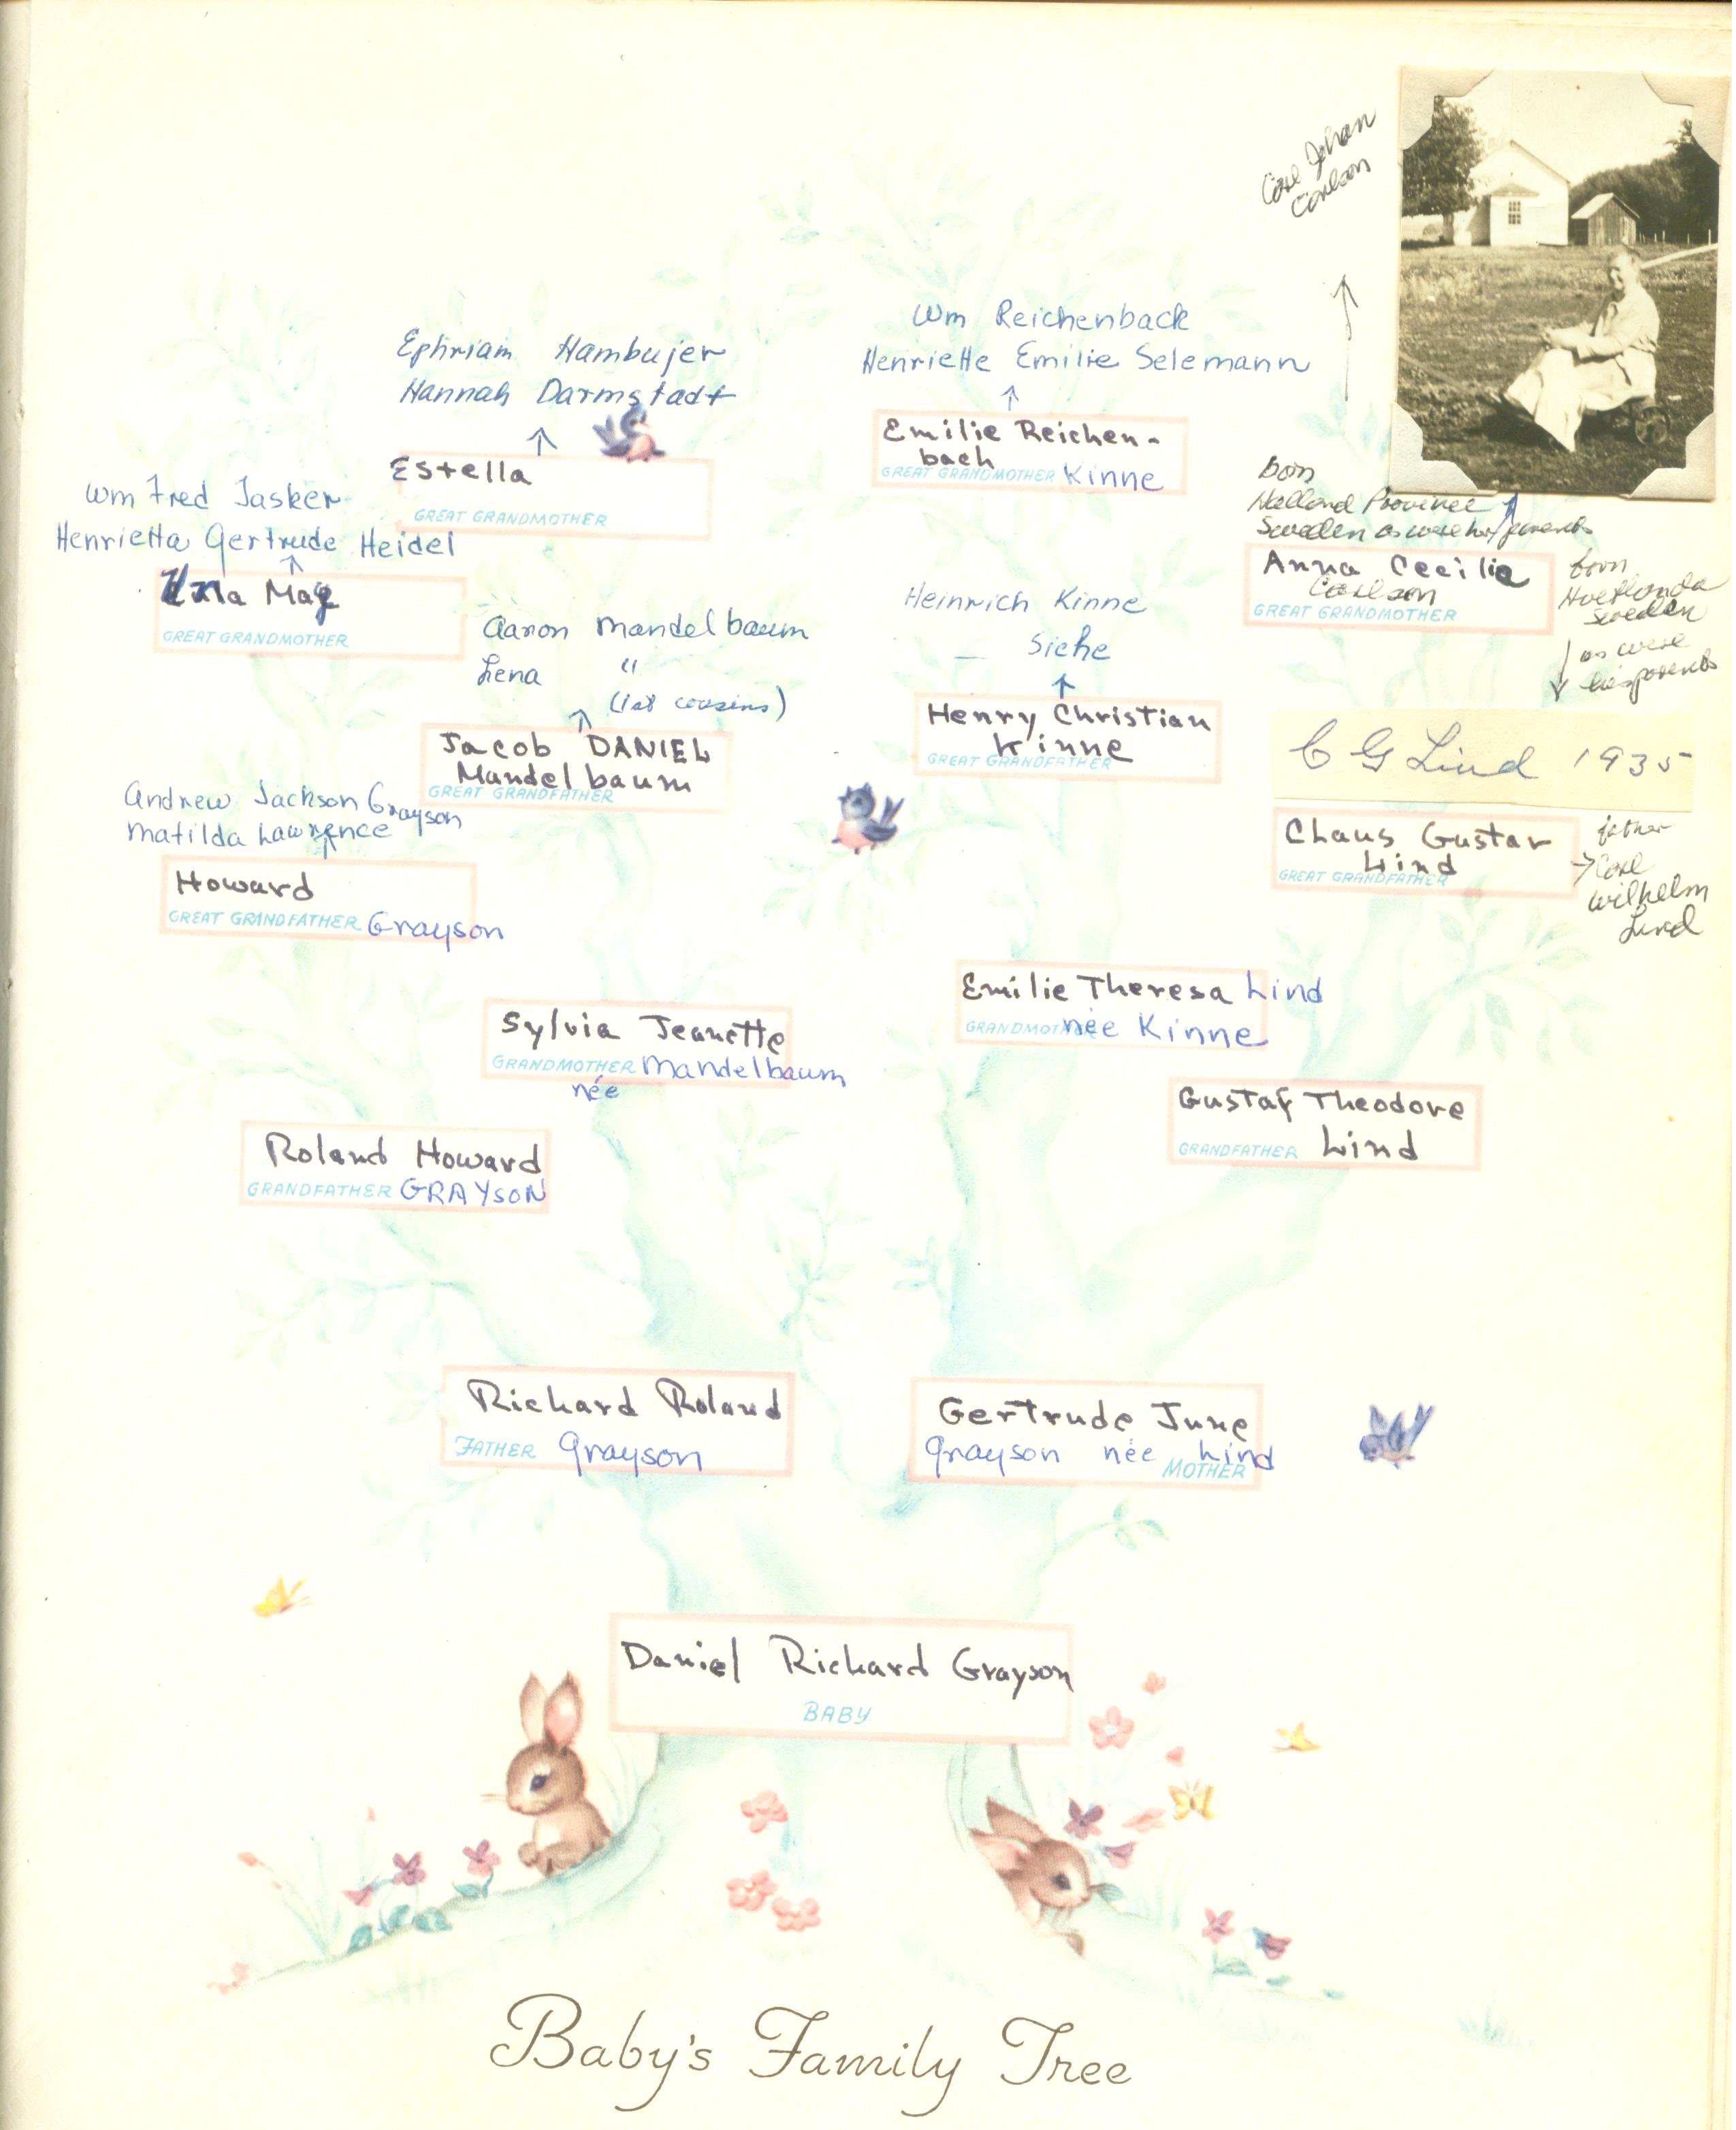 Carl Johan
Carlson
Wm Reichenback
Henriette Emilie Selemann
↑
Emilie Reichen-
bach
GREAT GRANDMOTHER Kinne
Ephriam Hambujer
Hannah Darmstadt
↑
Estella
GREAT GRANDMOTHER
born
Halland Province
Sweden as were her parents
Anna Cecilia
Carlson
GREAT GRANDMOTHER
born
Sweden
as were
his parents
Wm Fred Jasker
Henrietta Gertrude Heidel
↑
May
GREAT GRANDMOTHER
Heinrich Kinne
— Siehe
↑
Henry Christian
Kinne
GREAT GRANDFATHER
Aaron Mandelbaum
Lena "
(1st cousins)
↑
Jacob DANIEL
Mandelbaum
GREAT GRANDFATHER
C G Lind 1935
Chaus Gustav
Lind
GREAT GRANDFATHER
father
→ Carl
Wilhelm
Lind
Andrew Jackson Grayson
Matilda Lawrence
↑
Howard
GREAT GRANDFATHER Grayson
Emilie Theresa Lind
GRANDMOTHER née Kinne
Sylvia Jeanette
GRANDMOTHER Mandelbaum
née
Gustaf Theodore
GRANDFATHER Lind
Roland Howard
GRANDFATHER GRAYSON
Richard Roland
FATHER Grayson
Gertrude June
Grayson née Lind
MOTHER
Daniel Richard Grayson
BABY
Baby's Family Tree